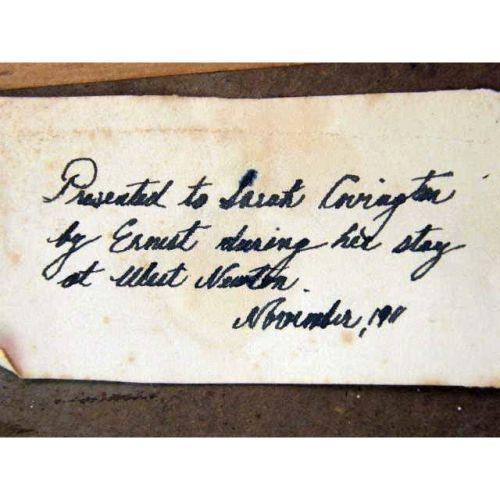 Presented to Sarah Covington
by Ernest during her stay
at West Newton.
November, 1911